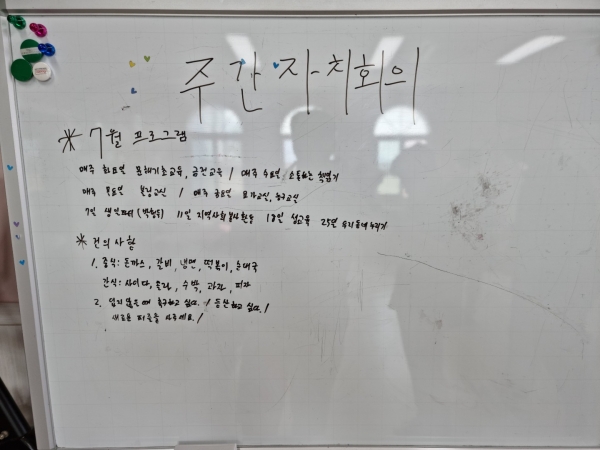 주간자치회의
* 7월 프로그램
매주 화요일 문해기초교육, 금전교육 / 매주 수요일 소통하는 책읽기
매주 목요일 볼링교실 / 매주 금요일 요가교실, 농구교실
7일 생일파티 11일 지역사회봉사활동 18일 성교육 25일 우리동네누리기
* 건의사항
1. 중식: 돈까스, 갈비, 냉면, 떡볶이, 순대국
간식: 사이다, 콜라, 수박, 과자, 피자
2. 덥지 않은 때 축구하고 싶다. / 등산하고 싶다. /
새로운 퍼즐을 사주세요. /